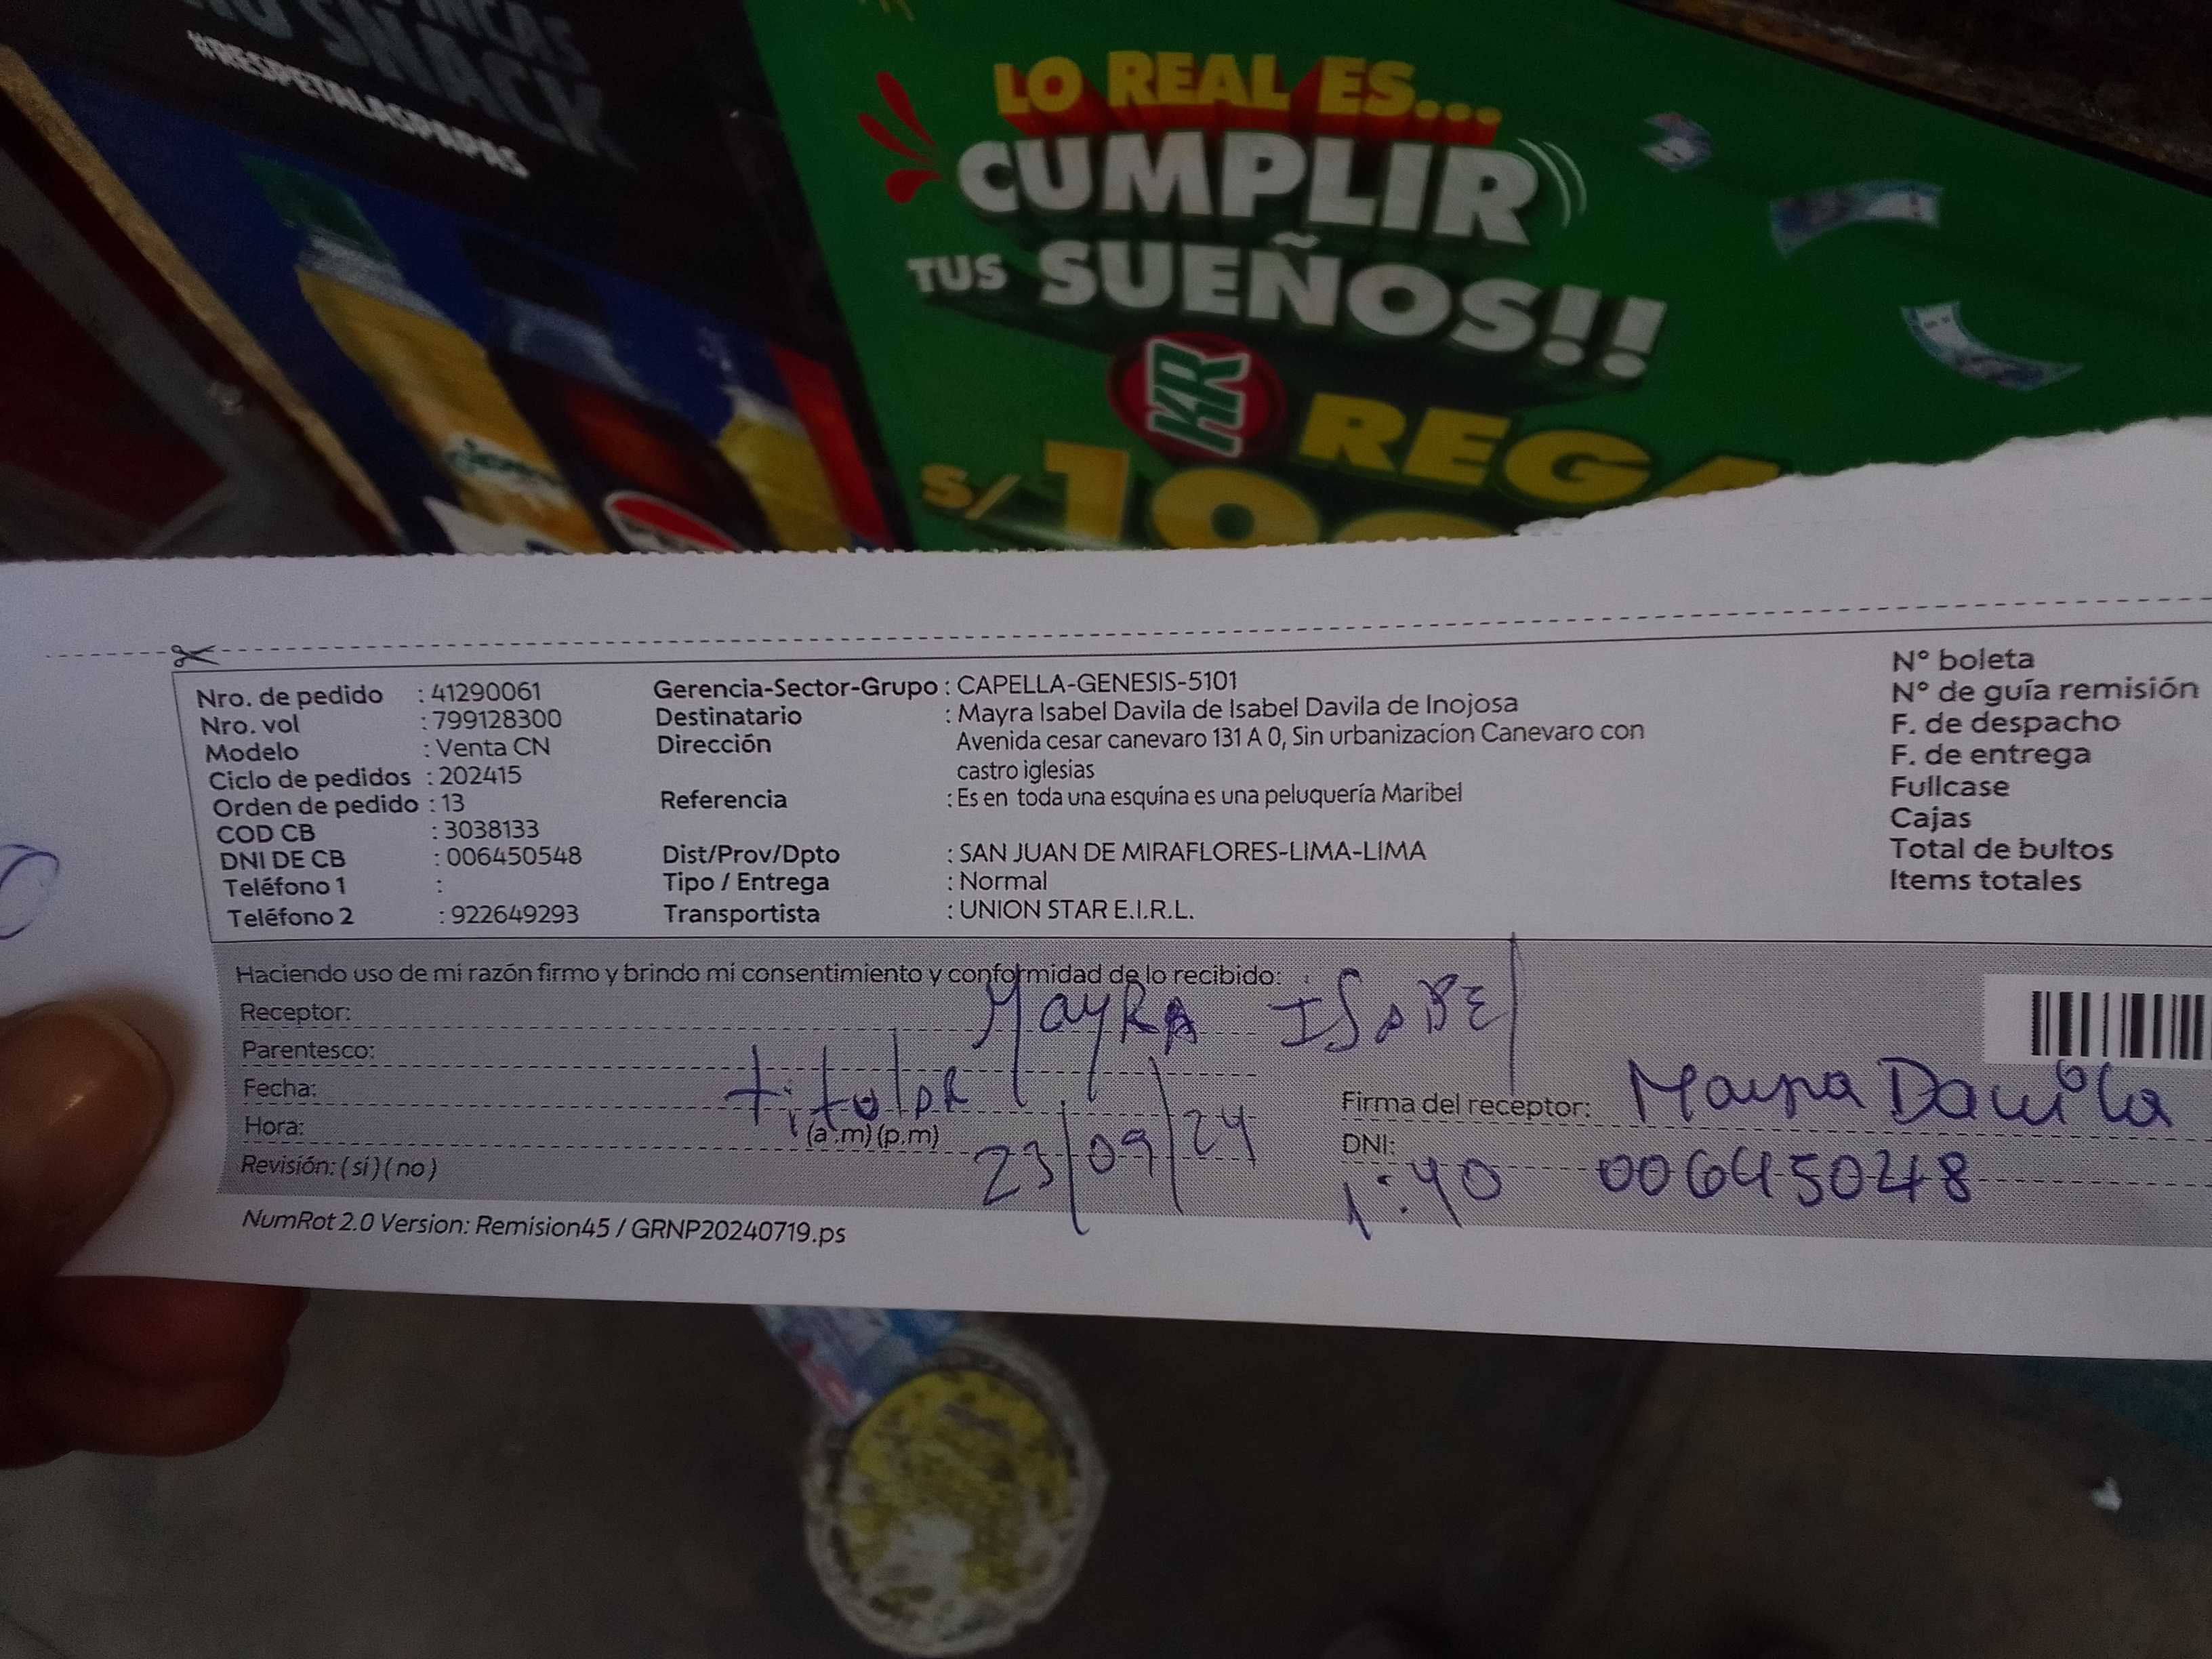 SNACK
#RESPETALASPAPAS
LO REAL ES...
CUMPLIR
TUS SUEÑOS!!
KR
S/
Nro. de pedido : 41290061
Nro. vol : 799128300
Modelo : Venta CN
Ciclo de pedidos : 202415
Orden de pedido : 13
COD CB : 3038133
DNI DE CB : 006450548
Teléfono 1 :
Teléfono 2 : 922649293
Gerencia-Sector-Grupo : CAPELLA-GENESIS-5101
Destinatario : Mayra Isabel Davila de Isabel Davila de Inojosa
Dirección Avenida cesar canevaro 131 A 0, Sin urbanizacion Canevaro con
castro iglesias
Referencia : Es en toda una esquina es una peluquería Maribel
Dist/Prov/Dpto : SAN JUAN DE MIRAFLORES-LIMA-LIMA
Tipo / Entrega : Normal
Transportista : UNION STAR E.I.R.L.
N° boleta
N° de guía remisión
F. de despacho
F. de entrega
Fullcase
Cajas
Total de bultos
Items totales
Haciendo uso de mi razón firmo y brindo mi consentimiento y conformidad de lo recibido:
Receptor: MAyRA ISABEl
Parentesco: titulAR
Fecha: 23/09/24
Hora: (a.m) (p.m) 1:40
Revisión: (si) (no)
Firma del receptor: Mayra Davila
DNI: 006445048
NumRot 2.0 Version: Remision45 / GRNP20240719.ps